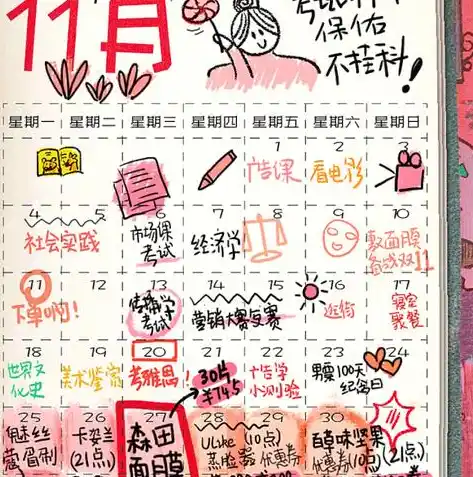 11月
考试
保佑
不挂科!
星期一 星期二 星期三 星期四 星期五 星期六 星期日
1 2 3
广告课 看电影
4 6 7 8 9 10
社会实践
市场课
考试
经济学
敷面膜
备战双11
11 12 13 14 15 16 17
下单啊!
传播学
考试
营销大赛复赛
逛街
寝室
聚餐
18 19 20 21 22 23 24
世界文
化史
美术鉴赏
考雅思!
30片
¥745
广告学
小测验
男票100天
纪念日
25 26 27 28 29 30
魅丝
蔻眉制
卡姿兰
(21点)
森田
面膜
Ulike (10点)
蒸脸器 优惠券
百草味坚果
优惠券(10点)
(21点)